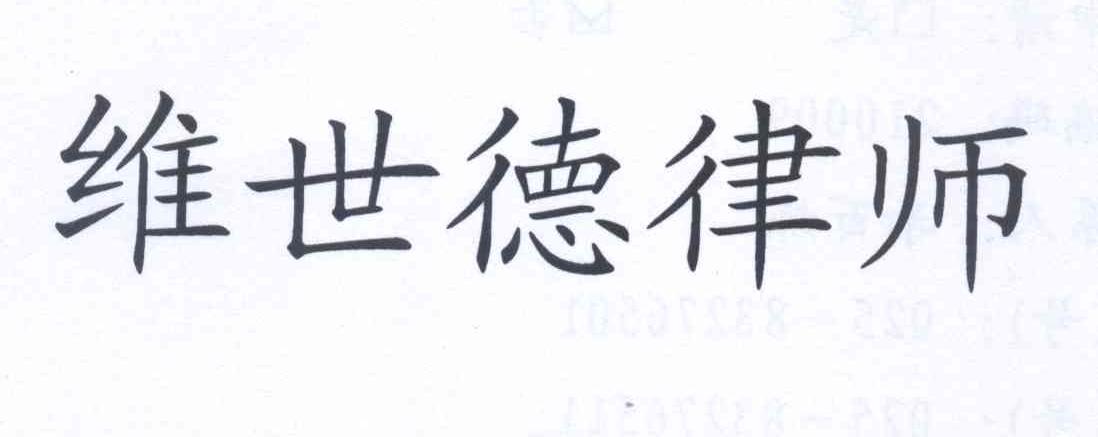 维世德律师